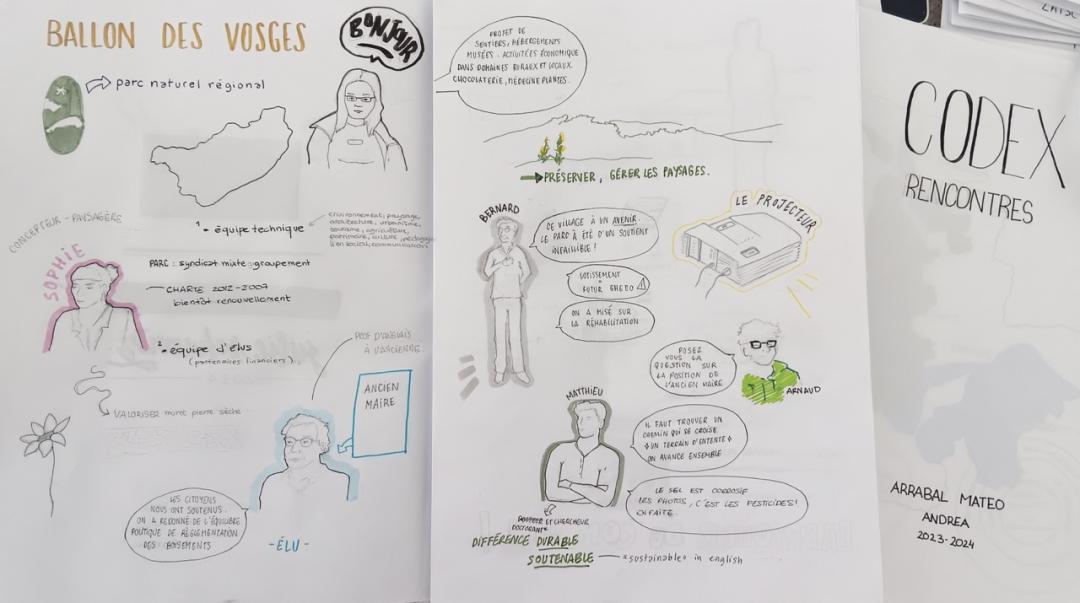 BALLON DES VOSGES
BONJOUR
parc naturel régional
CONCEPTEUR - PAYSAGÈRE
1 • équipe technique
environnement, paysage,
architecture, urbanisme,
tourisme, agriculture,
patrimoine, culture, pédagogie
lien social, communication
SOPHIE
PARC : syndicat mixte : groupement
CHARTE 2012-2007
bientôt renouvellement
2 • équipe d'élus
(partenaires financiers)
VALORISER muret pierre sèche
PROF D'ANGLAIS
À L'ANCIENNE
ANCIEN
MAIRE
LES CITOYENS
NOUS ONT SOUTENUS.
ON A REDONNÉ DE L'ÉQUILIBRE
POLITIQUE DE RÈGLEMENTATION
DES BOISEMENTS
- ÉLU -
PROJET DE
SENTIERS, HÉBERGEMENTS
MUSÉES. ACTIVITÉES ÉCONOMIQUE
DANS DOMAINES RURAUX ET LOCAUX.
CHOCOLATERIE, MÉDECINE PLANTES.
PRÉSERVER, GÉRER LES PAYSAGES.
BERNARD
CE VILLAGE À UN AVENIR.
LE PARC À ÉTÉ D'UN SOUTIENT
INFAILLIBLE !
LOTISSEMENT
=
FUTUR GHETTO
ON A MISÉ SUR
LA RÉHABILITATION
LE PROJECTEUR
POSEZ
VOUS LA
QUESTION SUR
LA POSITION DE
L'ANCIEN MAIRE
ARNAUD
MATTHIEU
IL FAUT TROUVER UN
CHEMIN QUI SE CROISE
UN TERRAIN D'ENTENTE
ON AVANCE ENSEMBLE
LE SEL EST CORROSIF
LES PHOTOS, C'EST LES PESTICIDES !
EN FAITE.
DOCTEUR ET CHERCHEUR
DOCTORANT
DIFFÉRENCE DURABLE
SOUTENABLE
"sustainable" in english
CODEX
RENCONTRES
ARRABAL MATEO
ANDREA
2023-2024